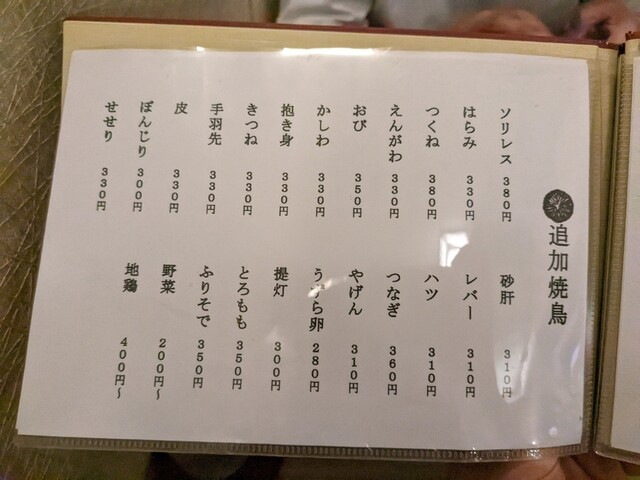 追加焼鳥
ソリレス 380円
はらみ 330円
つくね 380円
えんがわ 330円
おび 350円
かしわ 330円
抱き身 330円
きつね 330円
手羽先 330円
皮 330円
ぼんじり 300円
せせり 330円
砂肝 310円
レバー 310円
ハツ 310円
つなぎ 360円
やげん 310円
うずら卵 280円
提灯 300円
とろもも 350円
ふりそで 350円
野菜 200円〜
地鶏 400円〜